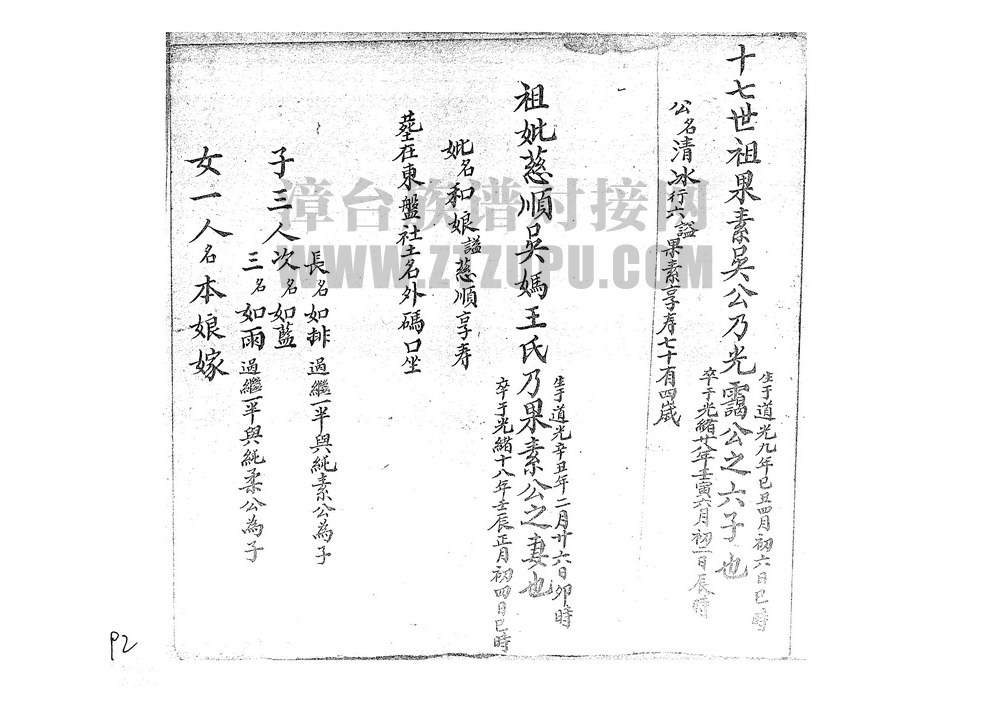 十七世祖果素吳公乃光靄公之六子也
生于道光九年己丑四月初六日巳時
卒于光緒廿八年壬寅六月初二日辰時
公名清冰行六謚果素享寿七十有四歲
祖妣慈順吳媽王氏乃果素公之妻也
生于道光辛丑年二月廿六日卯時
卒于光緒十八年壬辰正月初四日巳時
妣名和娘謚慈順享寿
塟在東盤社土名外碼口坐
子三人
長名如排過繼一半與純素公為子
次名如藍
三名如雨過繼一半與純柔公為子
女一人名本娘嫁
漳台族谱对接网
WWW.ZTZUPU.COM
P2